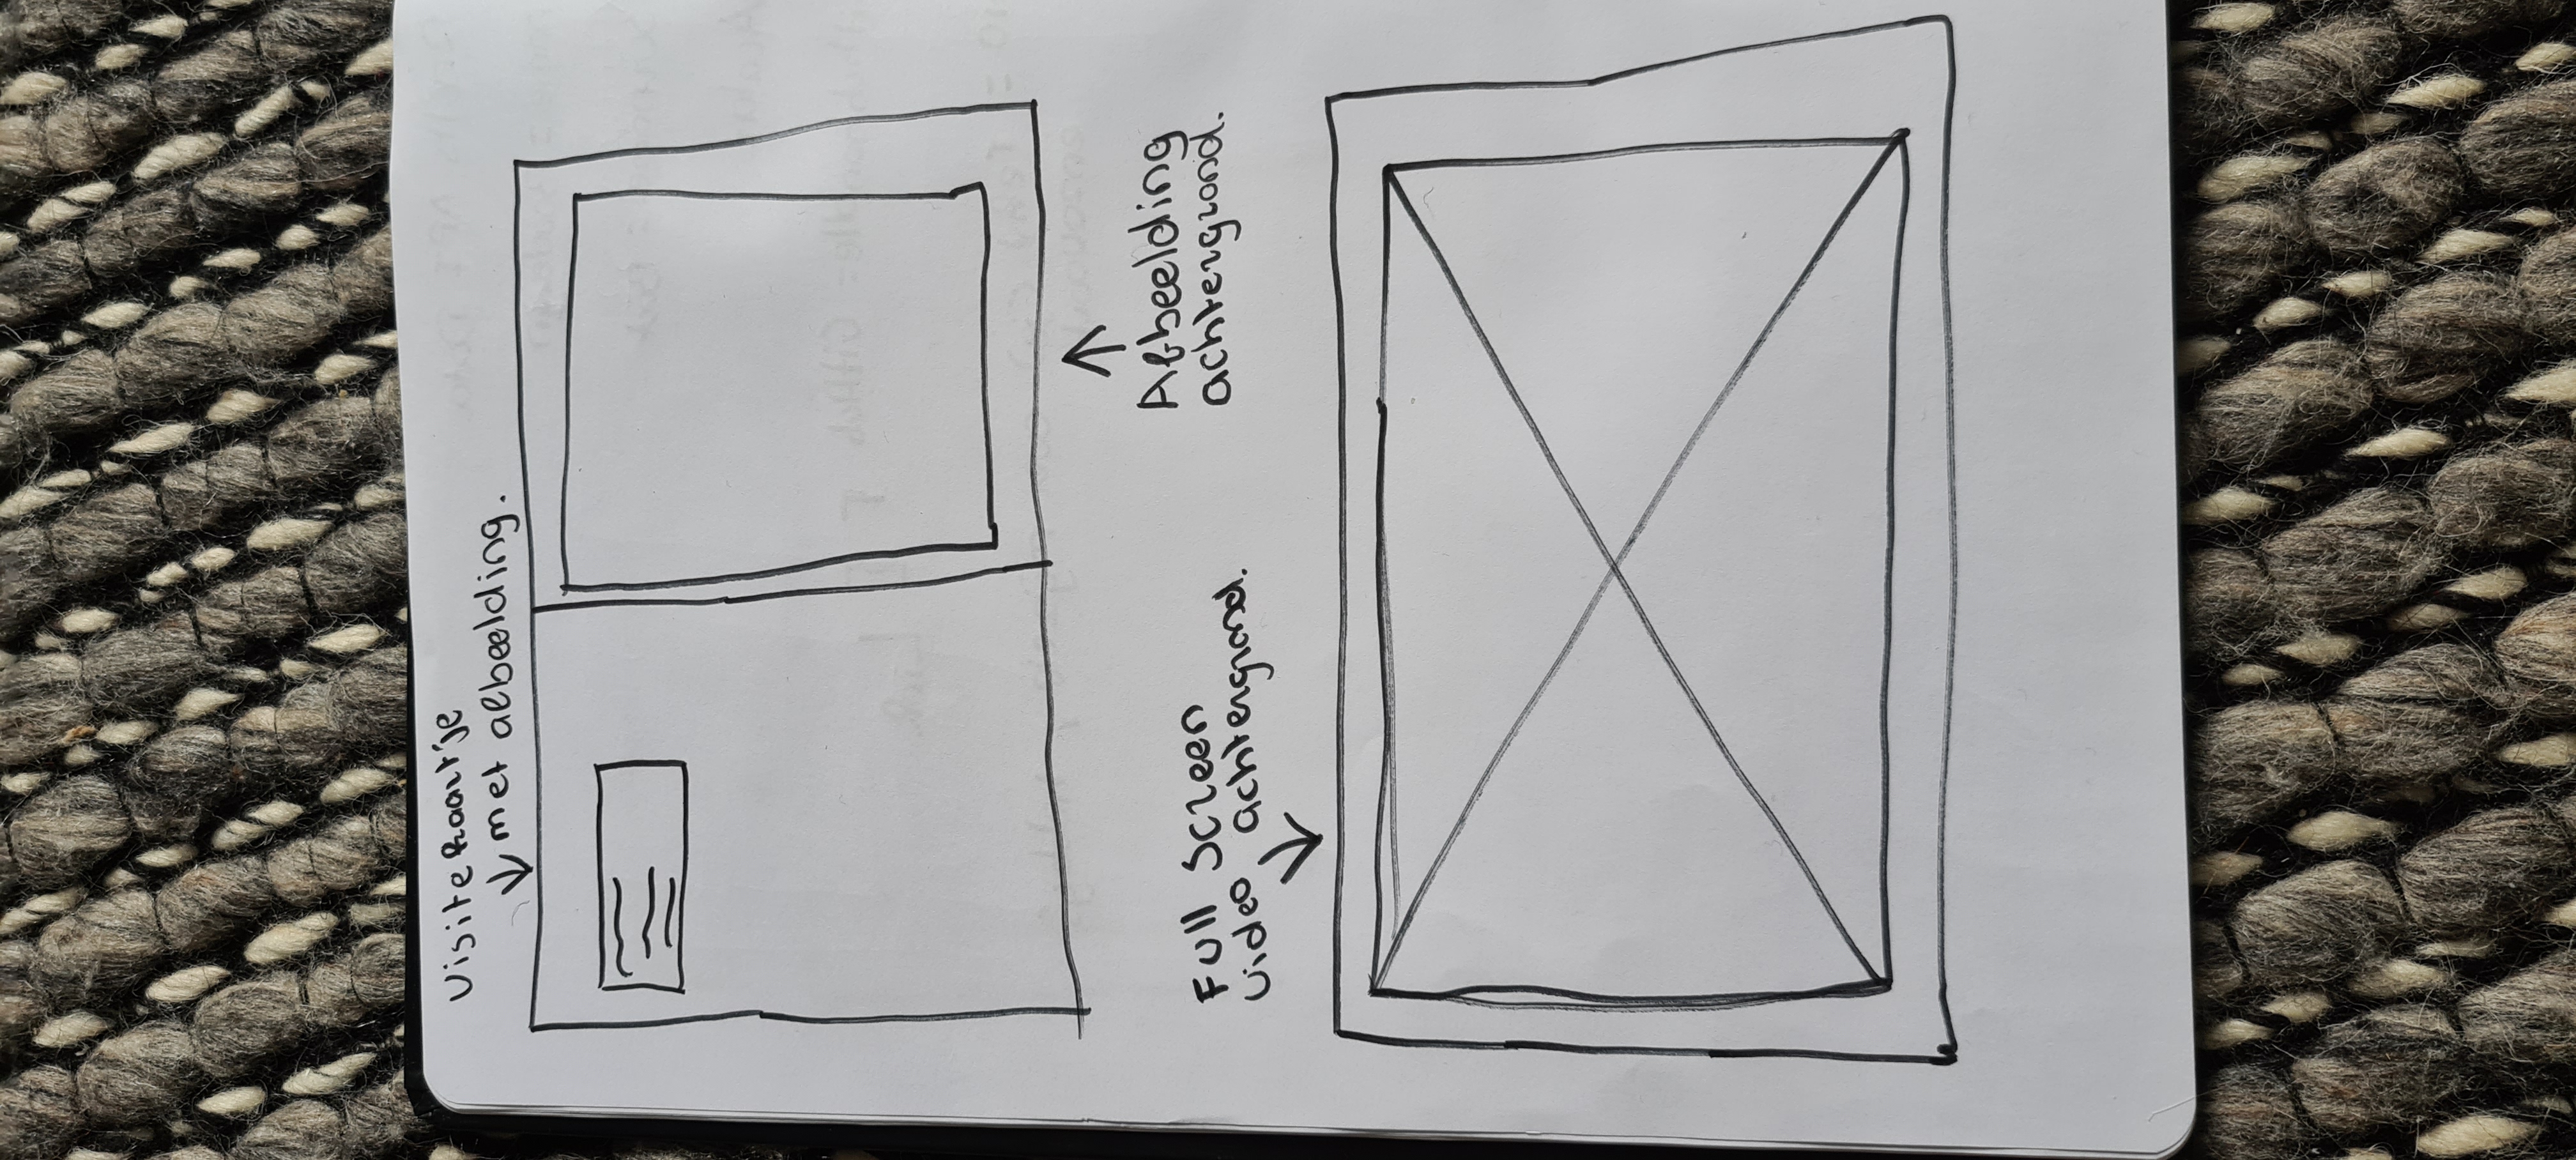 Visitekaartje
met afbeelding.
Afbeelding
achtergrond.
Full Screen
video achtergrond.